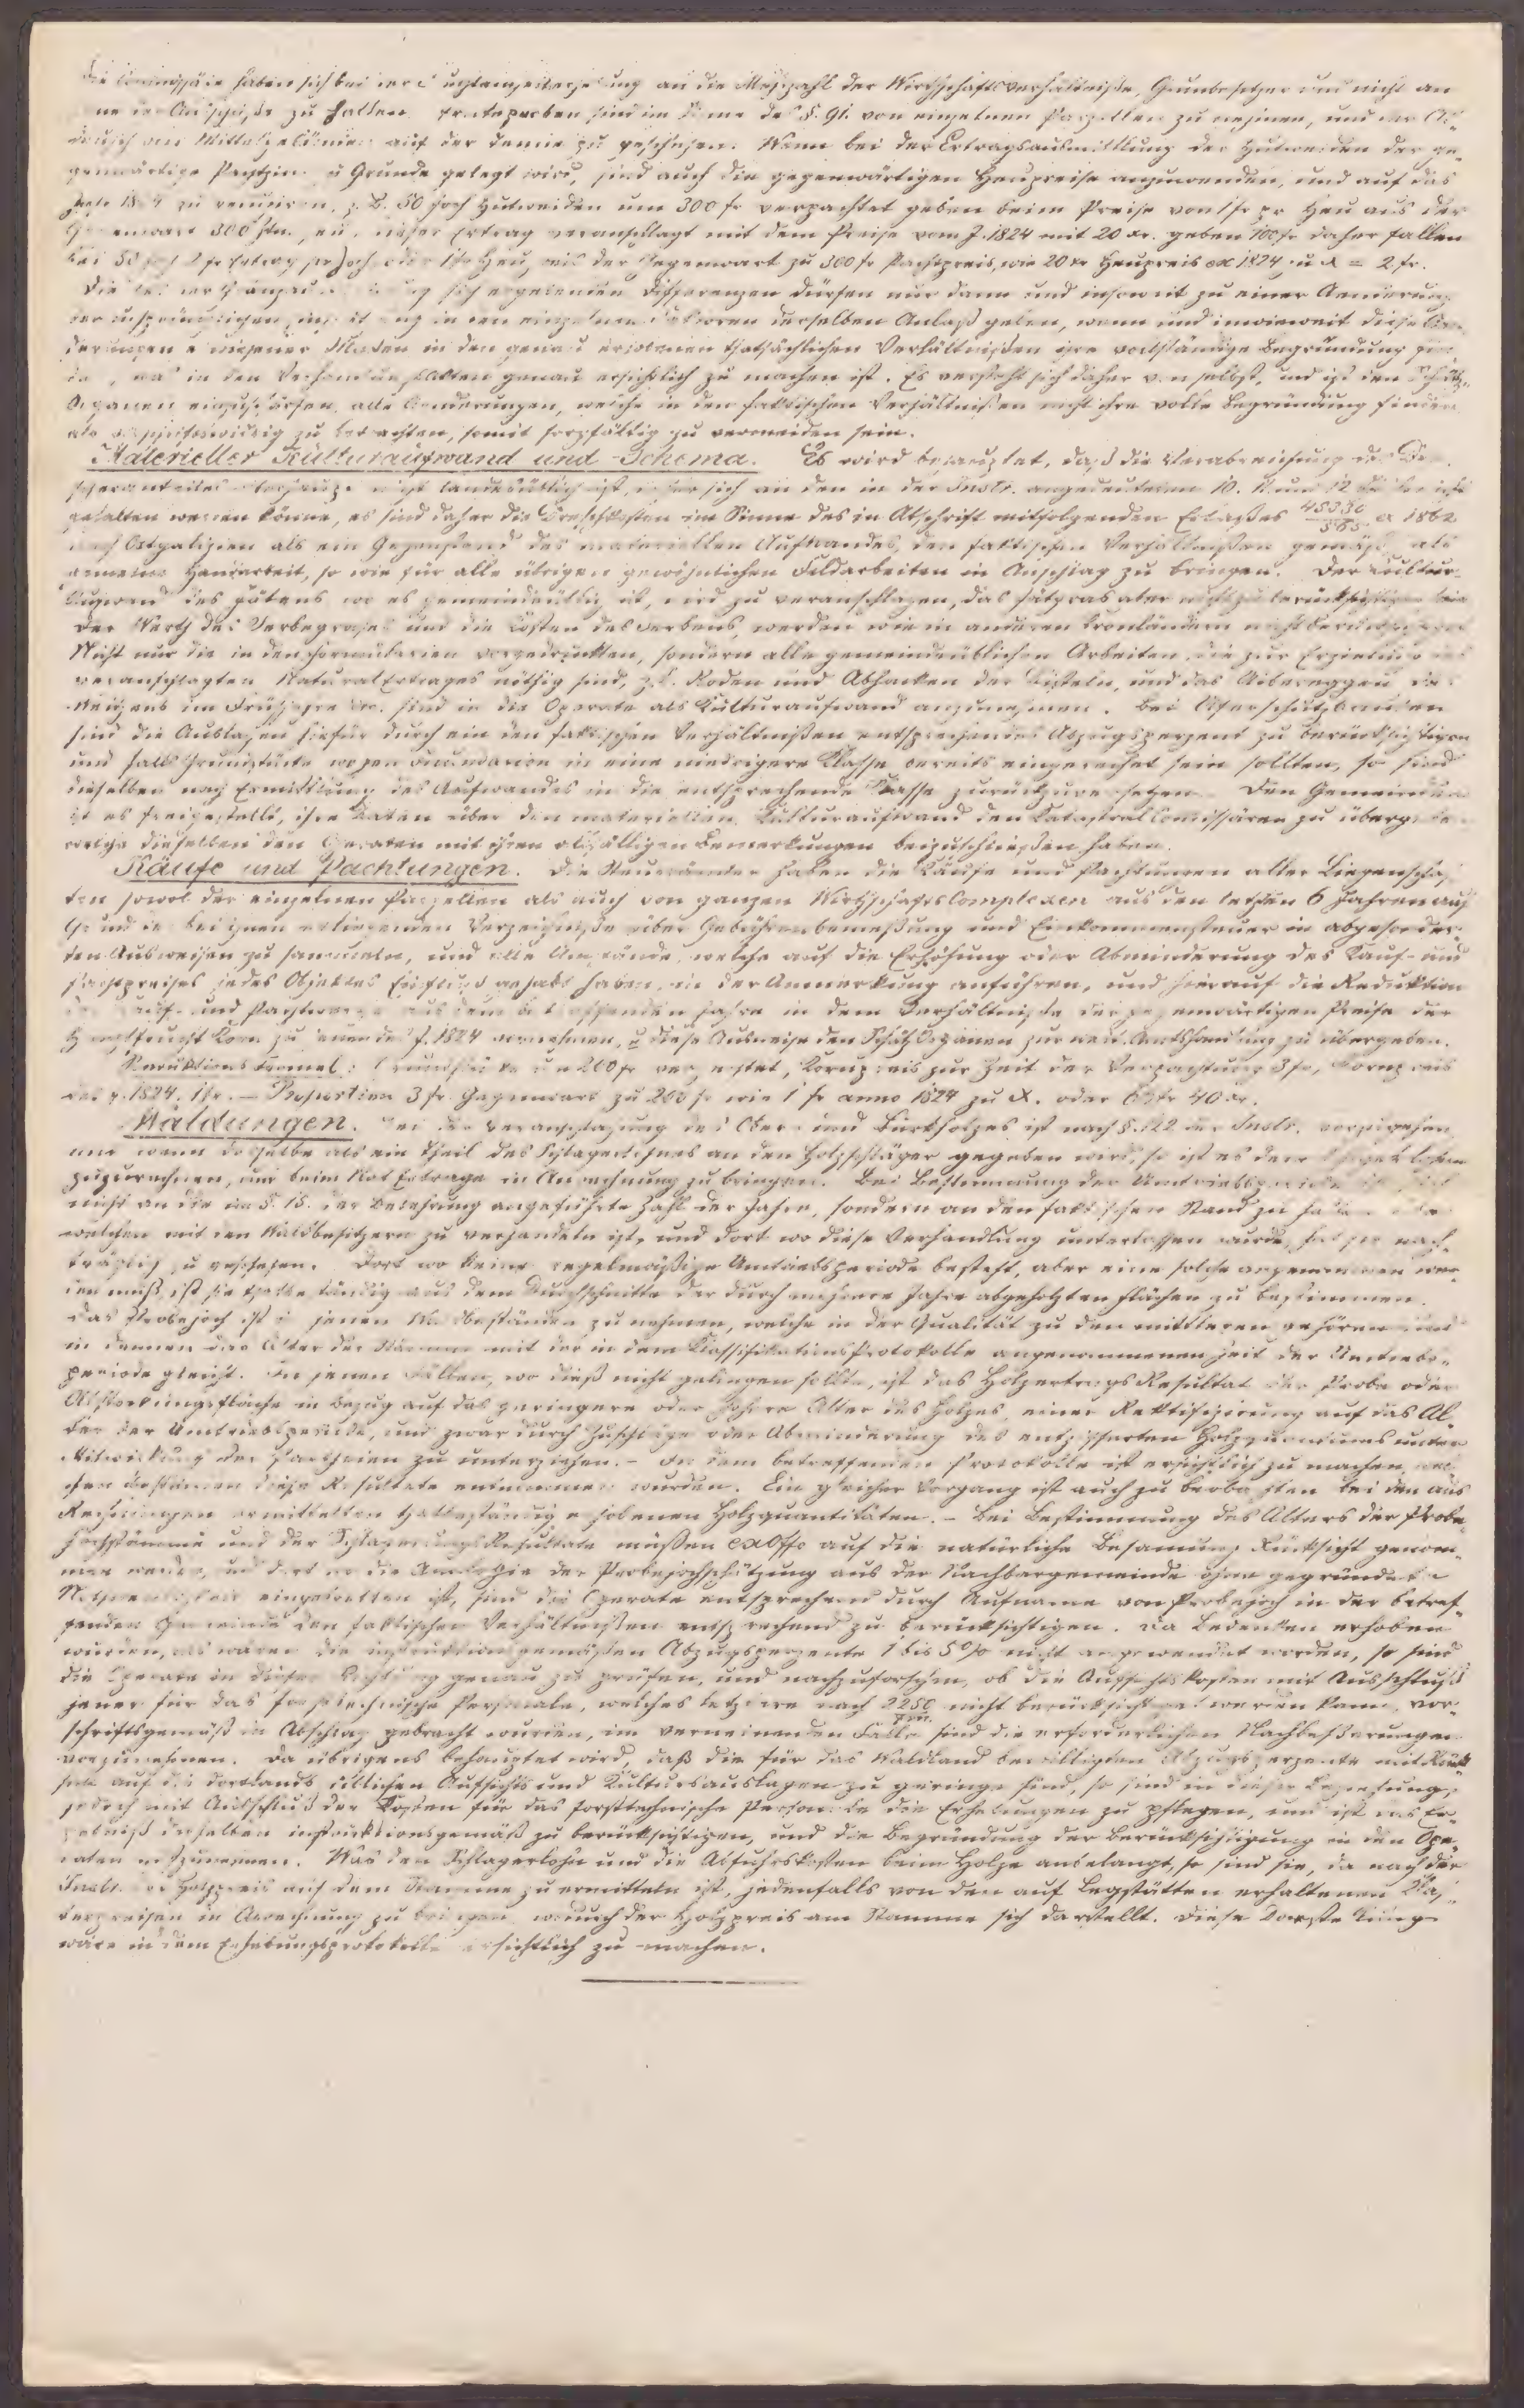 haben sich bei an die Mehrzahl der Wirthschaftsverhältniße, Grundbesitzer und nicht an
zu halten. sind im Sinne des §. 91. von einzelnen Parzellen zu nehmen, und
auf der Tenne zu geschehen. Wenn bei der Ertragsausmittlung der Hutweiden der ge-
genwärtige Pachtzins zu Grunde gelegt wird, sind auch die gegenwärtigen Heupreise anzuwenden, und auf das
zu reduziren, z. B. 50 Joch Hutweiden um 300 fr verpachtet geben beim Preise von 1 fr pr Heu aus der
300 Ztn. Heu, dieser Ertrag veranschlagt mit dem Preise vom J. 1824 mit 20 xr. geben 100 fr daher fallen
der Gegenwart zu 300 fr Pachtpreis, wie 20 xr Heupreis ex 1824 zu X = 2 fr.
Die sich ergebenden Differenzen dürfen nur dann und insoweit zu einer Aenderung
der ursprünglichen in den einzelnen derselben Anlaß geben, wenn und inwieweit diese
in den genau erhobenen thatsächlichen Verhältnißen ihre vollständige Begründung
in den genau ersichtlich zu machen ist. Es versteht sich daher von selbst, und ist den Schätz-
Organen einzuschärfen, alle Aenderungen, welche in den faktischen Verhältnißen nicht ihre volle Begründung finden
als zu betrachten, somit sorgfältig zu vermeiden sein.
Materieller Kulturaufwand und Schema. Es wird behauptet, daß die Verabreichung des
nicht landesüblich ist, sich an den in der Instr. angedeuteten 10. 11. und 12
gehalten werden könne, es sind daher die Dreschkosten im Sinne des in Abschrift mitfolgenden Erlaßes ex 1862
Ostgalizien als ein Gegenstand des materiellen Aufwandes, den faktischen Verhältnißen gemäß als
Handarbeit, so wie für alle übrigen gewöhnlichen Feldarbeiten in Anschlag zu bringen. Der Kultur-
aufwand des Jätens wo es gemeindeüblich ist, wird zu veranschlagen, das Jätgras aber nicht zu berücksichtigen sein
Der Werth des und die Kosten des werden wie in anderen Kronländern nicht
Nicht nur die in den Formularien vorgedruckten, sondern alle gemeindeüblichen Arbeiten, die zur Erzielung des
veranschlagten Natural Ertrages nöthig sind, z. B. Roden und Abhacken der Disteln, und das Uibereggen des
Weizens im Frühjahre sind in die Operate als Kulturaufwand anzunehmen. Bei Uferschutzbauten
sind die Auslagen hiefür durch ein den faktischen Verhältnißen entsprechendes Abzugsperzent zu berücksichtigen
und falls Grundstücke wegen Inundazion in eine niedrigere Klasse bereits eingereihet sein sollten, so sind
dieselben nach Ermittlung des Aufwandes in die entsprechende Klasse zurückzuversetzen. Den Gemeinden
ist es freigestellt, ihre Daten über den materiellen Kulturaufwand den Katastral Commissären zu übergeben
welche dieselben den Operaten mit ihren allfälligen Bemerkungen beizuschließen haben.
Käufe und Pachtungen. Die Steuerämter haben die Käufe und Pachtungen aller Liegenschaf-
ten sowol der einzelnen Parzellen als auch von ganzen Wirthschafts Complexen aus den letzten 6 Jahren auf
Grund der bei ihnen erliegenden Verzeichniße über Gebührenbemeßung und Einkommensteuer in abgesonder-
ten Ausweisen zu sammeln, und alle Umstände, welche auf die Erhöhung oder Abminderung des Kauf- und
Pachtpreises jedes Objektes Einfluß gehabt haben, in der Anmerkung anführen, und hierauf die Reduktion
der Kauf- und Pachtwerthe aus dem betreffenden Jahre in dem Verhältniße der gegenwärtigen Preise der
Hauptfrucht Korn zu jenen des J. 1824 vornehmen, u diese Ausweise den Schätz Organen zur weit. Amtshandlung zu übergeben.
Reduktions Formel: Grundstücke um 200 fr verpachtet, Kornpreis zur Zeit der Verpachtung 3 fr, Kornpreis
des J. 1824. 1 fr. — Proportion 3 fr. Gegenwart zu 200 fr wie 1 fr anno 1824 zu X. oder 66 fr 40 xr.
Waldungen. Bei der Veranschlagung des Ober- und Bürkholzes ist nach §. 122 der Instr. vorzugehen
und wenn dasselbe als ein Theil des Schlagerlohnes an den Holzschläger gegeben wird, so ist es dem Schlagerlohn
zuzurechnen, und beim Roh Ertrage in Anrechnung zu bringen. Bei Bestimmung der Umtriebsperiode ist sich
nicht an die im §. 15. der Belehrung angeführte Zahl der Jahre, sondern an den faktischen Stand zu halten
welchen mit den Waldbesitzern zu verhandeln ist, und dort wo diese Verhandlung unterlassen wurde, hat sie nach-
träglich zu geschehen. Dort wo keine regelmäßige Umtriebsperiode besteht, aber eine solche angenommen wer-
den muß, ist sie thatbeständig aus dem Durchschnitte der durch mehrere Jahre abgeholzten Flächen zu bestimmen.
Das Probejoch ist in jenen Waldbeständen zu nehmen, welche in der Qualität zu den mittleren gehören und
in denen das Alter der Stämme mit der in dem Klassifikations Protokolle angenommenen Zeit der Umtriebs-
periode gleicht. In jenen Fällen, wo dieß nicht gelingen sollte, ist das Holzertrags Resultat der Probe oder
Abstockungsfläche in Bezug auf das geringere oder höhere Alter des Holzes, einer Rektifizirung auf das Al-
ter der Umtriebsperiode, und zwar durch Zuschläge oder Abminderung des entzifferten Holzquantums unter
Mitwirkung der Partheien zu unterziehen. – In dem betreffenden Protokolle ist ersichtlich zu machen, wel-
chen Beständen diese Resultate entnommen wurden. Ein gleicher Vorgang ist auch zu beobachten bei den aus
Rechnungen ermittelten thatbeständig erhobenen Holzquantitäten. – Bei Bestimmung des Alters der Probe-
jochstämme und der Schlagerungs Resultate müßen ex offo auf die natürliche Besamung Rücksicht genom-
men werden, und dort wo die Analogie der Probejochschätzung aus der Nachbargemeinde ohne gegründete
Nothwendigkeit eingetretten ist, sind die Operate entsprechend durch Aufname von Probejoch in der betref-
fenden Gemeinde den faktischen Verhältnißen entsprechend zu berücksichtigen. Da Bedenken erhoben
wurden, als wären die instruktionsgemäßen Abzugsperzente 1 bis 5 % nicht angewendet worden, so sind
die Operate in dieser Richtung genau zu prüfen, und nachzuforschen, ob die Aufsichtskosten mit Ausschluß
jener für das forsttechnische Personale, welches letztere nach 2250 nicht berücksichtigt werden kann, vor-
schriftsgemäß in Abschlag gebracht wurden, im verneinenden Falle sind die erforderlichen Nachbeßerungen
vorzunehmen. Da übrigens behauptet wird, daß die für das Waldland bewilligten Abzugsperzente mit Rück-
sicht auf die dortlands üblichen Aufsichts und Kultursauslagen zu geringe sind, so sind in dieser Beziehung,
jedoch mit Ausschluß der Kosten für das forsttechnische Personale die Erhebungen zu pflegen, und ist das Er-
gebniß derselben instruktionsgemäß zu berücksichtigen, und die Begründung der Berücksichtigung in den Ope-
raten aufzunehmen. Was den Schlagerlohn und die Abfuhrskosten beim Holze anbelangt, so sind sie, da nach der
Instr. der Holzpreis auf dem Stamme zu ermitteln ist, jedenfalls von den auf Legstätten erhaltenen
in Abrechnung zu bringen wodurch der Holzpreis am Stamme sich darstellt. Diese Darstellung
wäre in dem Erhebungsprotokolle ersichtlich zu machen.